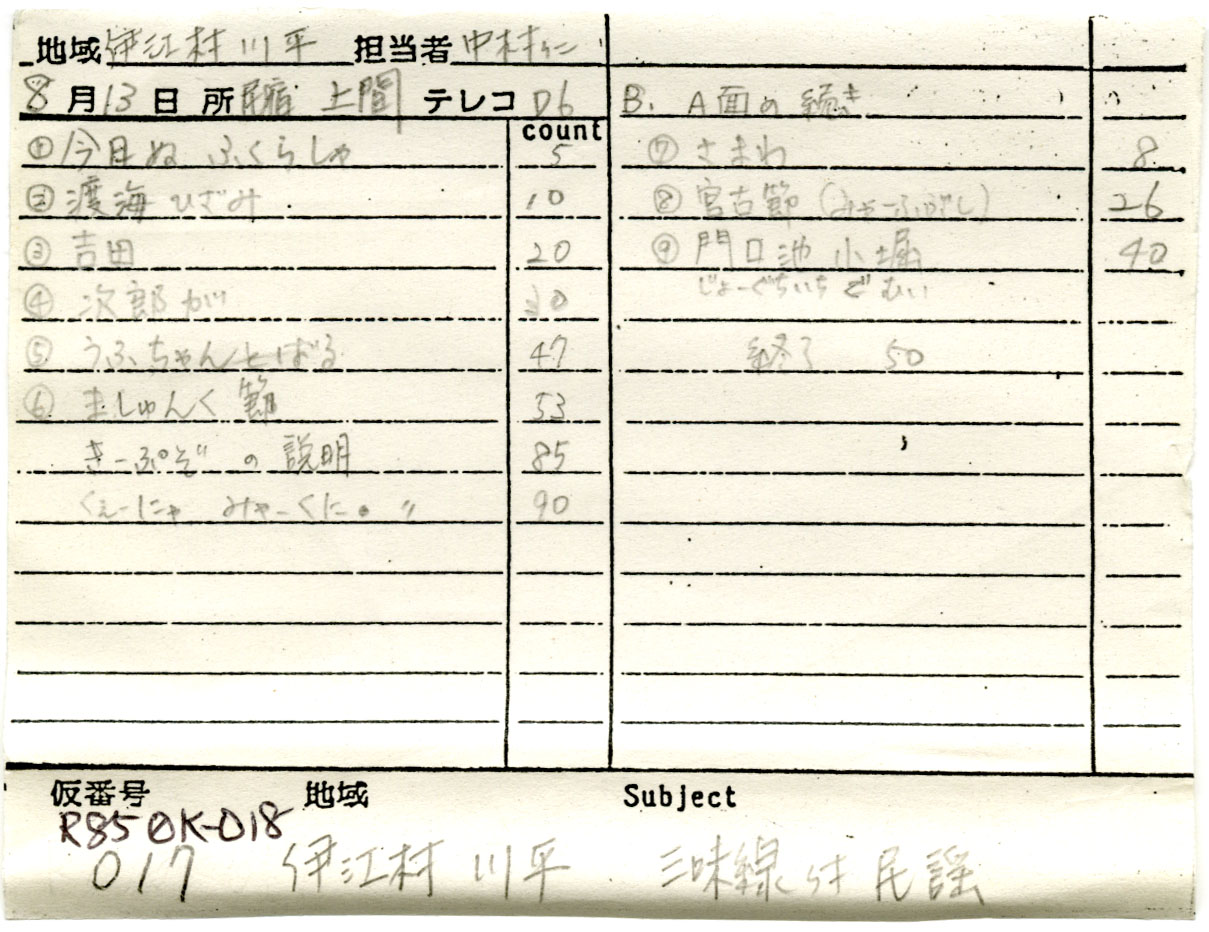 地域 伊江村 川平 担当者 中村仁
8月13日 所 民宿 上間 テレコ D6
count
① 今日ぬ ふくらしゃ 5
② 渡海 ひざみ 10
③ 吉田 20
④ 次郎が 30
⑤ うふちゃんとばる 47
⑥ ましゅんく 節 53
きーぷぞ の 説明 85
くぇーにゃ みゃーくに 〃 90
B. A面の続き
⑦ さまわ 8
⑧ 宮古節 (みゃーふぶし) 26
⑨ 門口池 小堀 40
じょーぐちいち ぐむい
終了 50
仮番号 地域 Subject
R85OK-018
017 伊江村 川平 三味線付 民謡